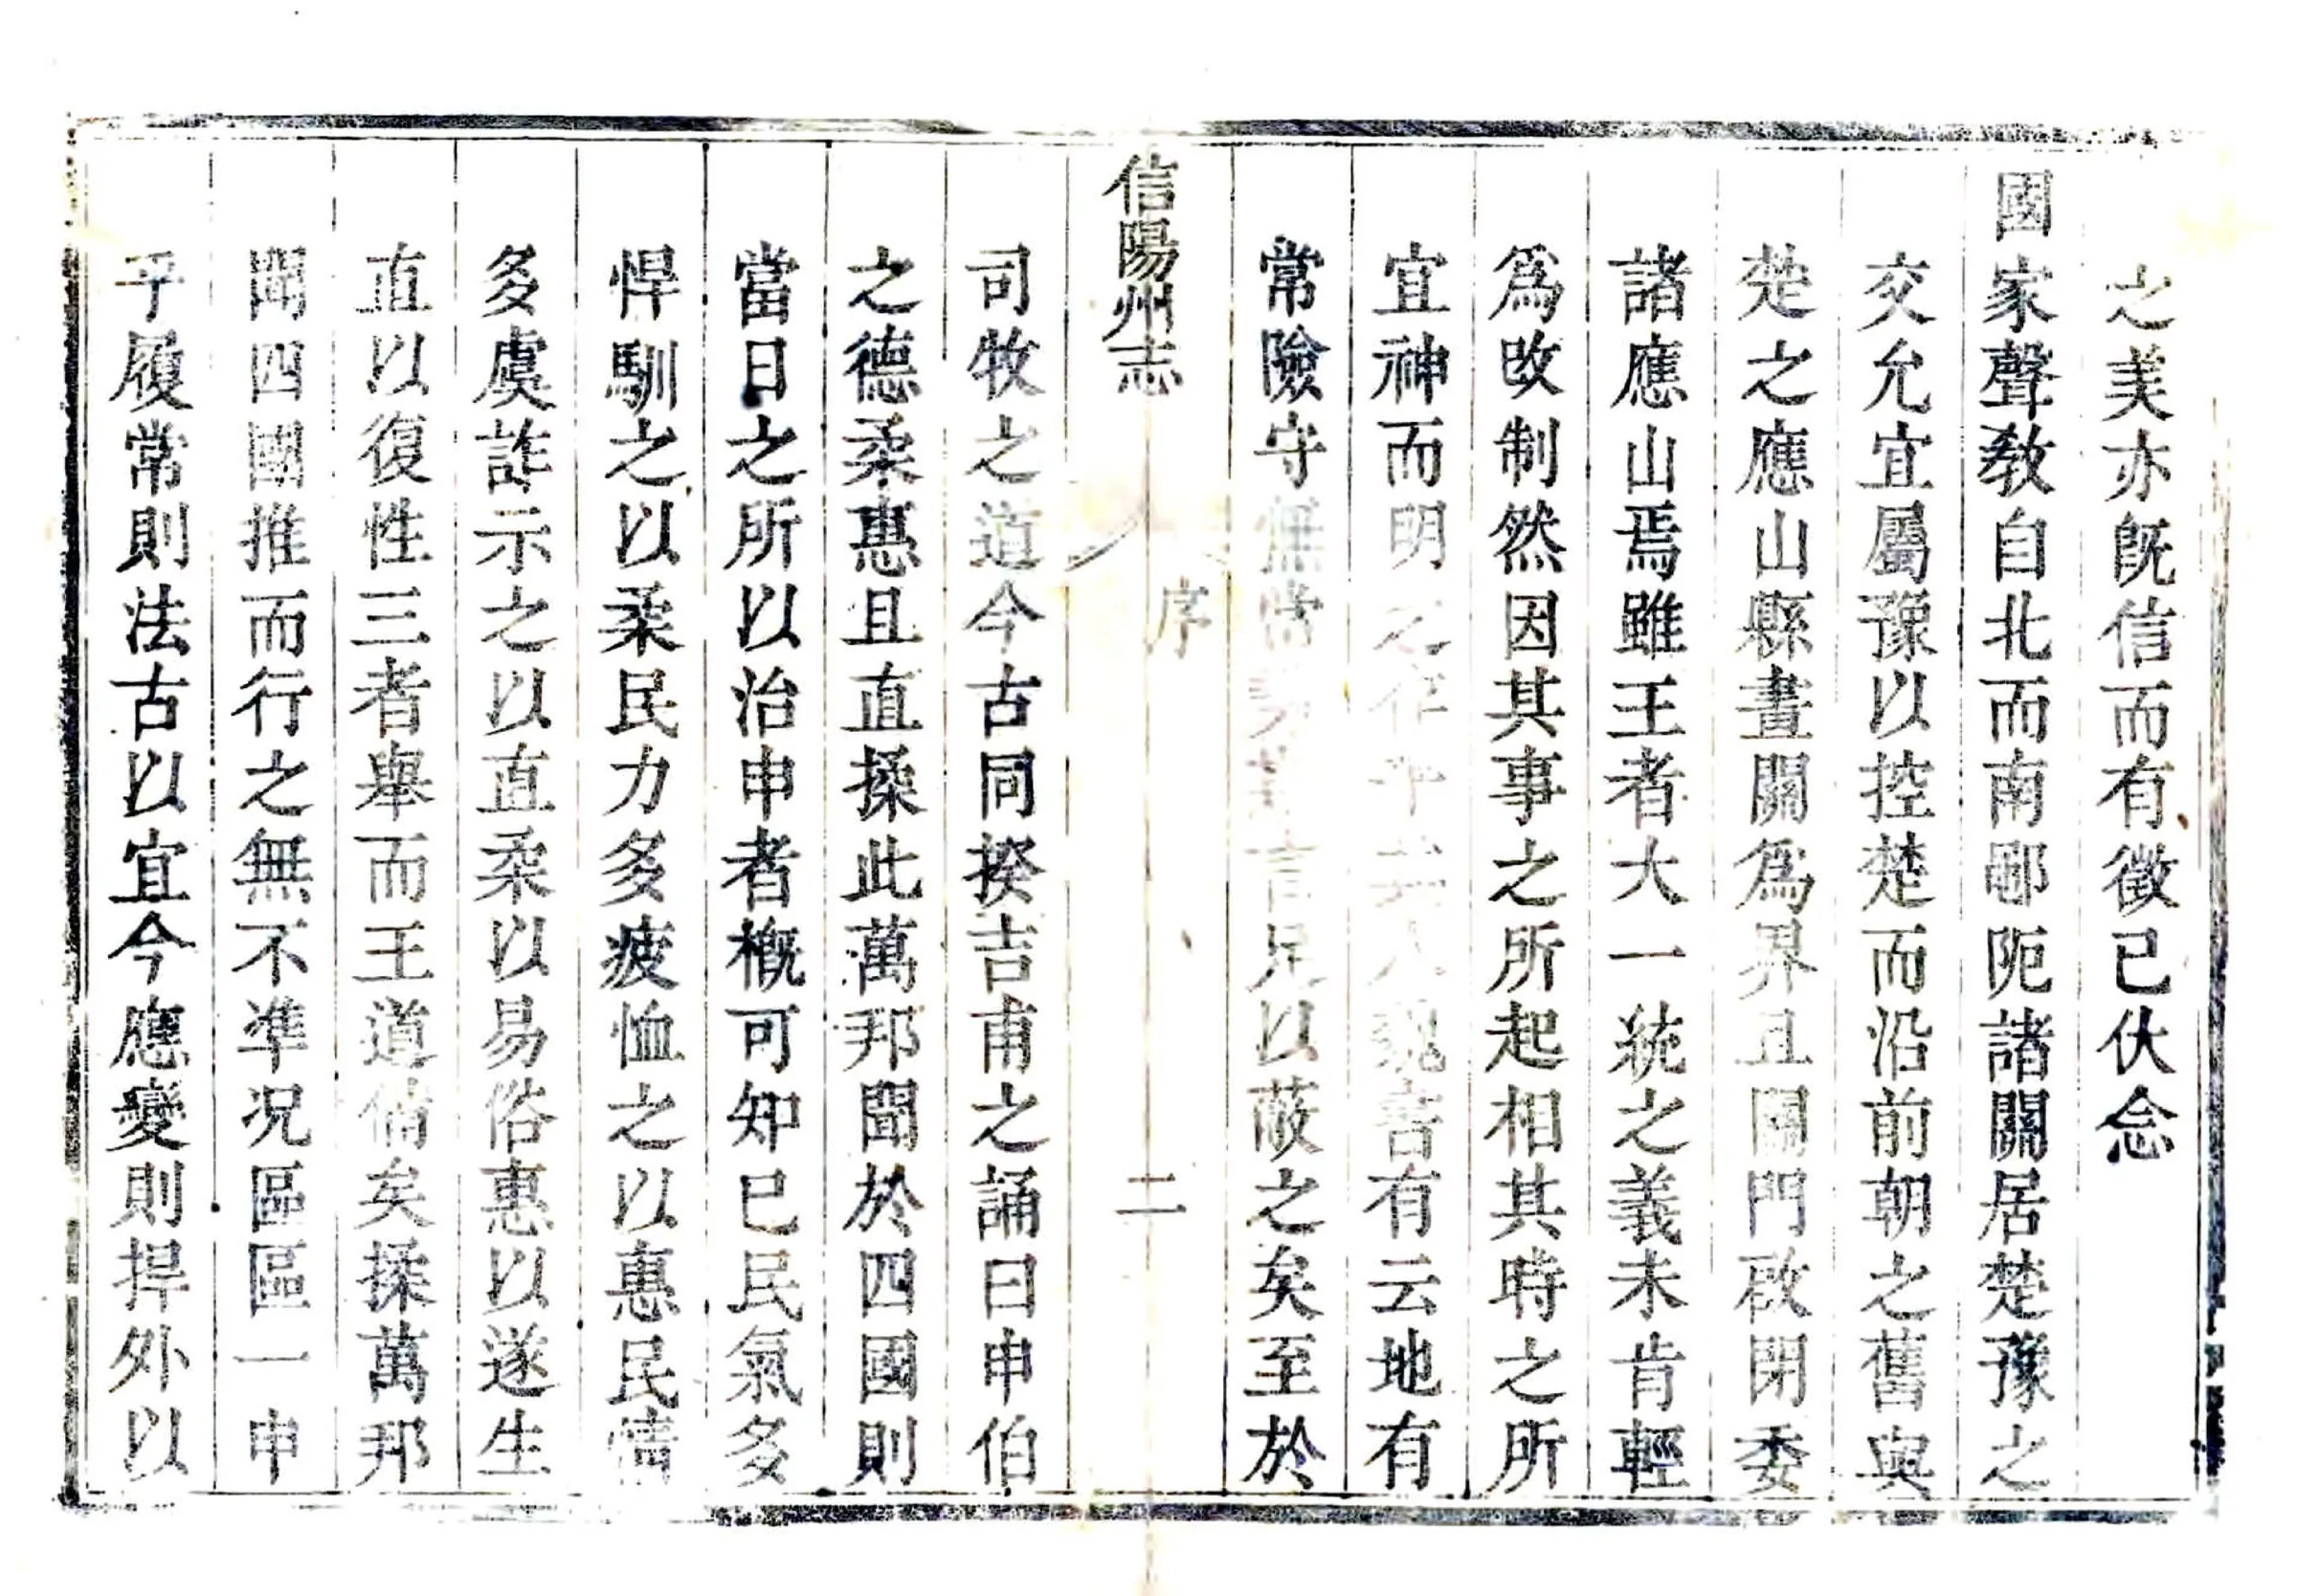 之美亦旣信而有徵已伏念
國家聲敎自北而南鄳阨諸關居楚豫之
交允宜屬豫以控楚而沿前朝之舊與
楚之應山縣畫關爲界且關門啟閉委
諸應山焉雖王者大一統之義未肯輕
爲改制然因其事之所起相其時之所
宜神而明之存乎其人魏書有云地有
常險守無常勢言足以蔽之矣至於
信陽州志
序
二
司牧之道今古同揆吉甫之誦曰申伯
之德柔惠且直揉此萬邦聞於四國則
當日之所以治申者槪可知已民氣多
悍馴之以柔民力多疲恤之以惠民情
多虞詐示之以直柔以易俗惠以遂生
直以復性三者舉而王道備矣揉萬邦
聞四國推而行之無不準况區區一申
乎履常則法古以宜今應變則捍外以